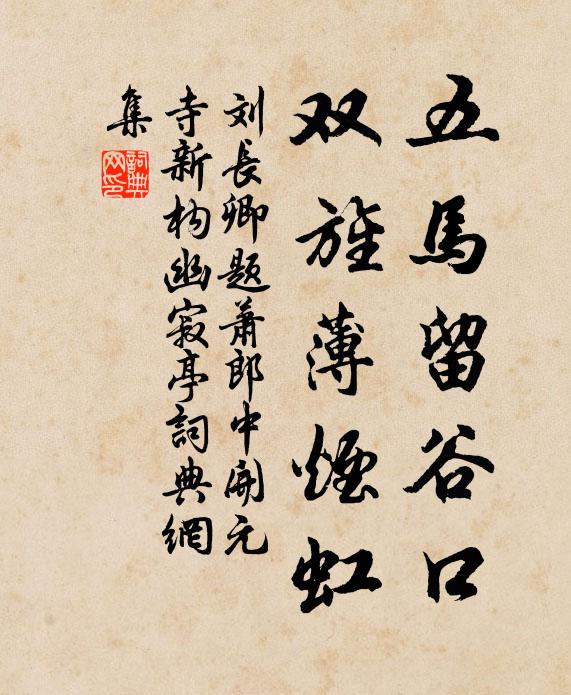 五馬留谷口
双旌薄煙虹
刘長卿題蕭郎中開元
寺新构幽寂亭詞典網
集
詞典网印